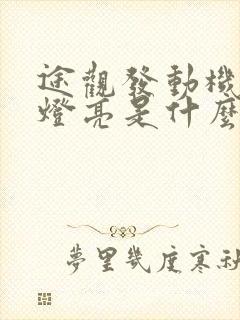 途觀發動機
燈亮是什麼
夢里幾度寒秋